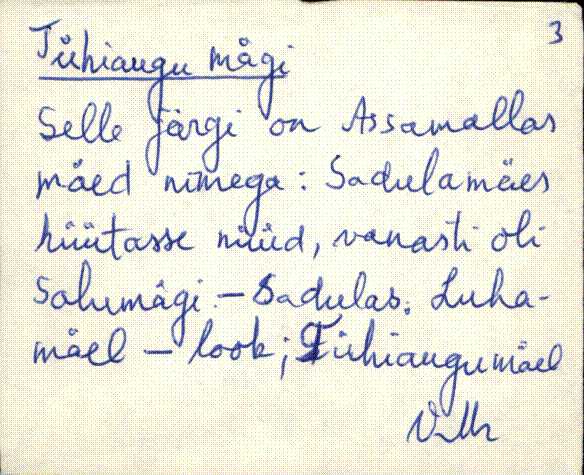 3
Tühiaugu mägi
Selle järgi on Assamallas
mäed nimega: Sadulamäes
hüütasse nüüd, vanasti oli
Salumägi. – Sadulas. Luha-
mäel – look; Tühiaugumäel